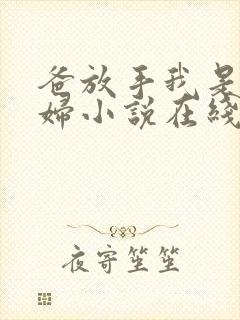 爸放手我是
婦小說在綫
夜寄笙笙